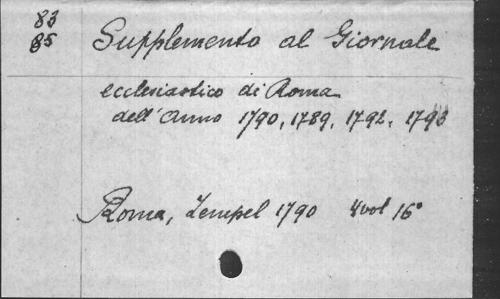 83
85
Supplemento al Giornale
ecclesiastico di Roma
dell'Anno 1790, 1789, 1792, 1793
Roma, Zempel 1790 4 vol 16°